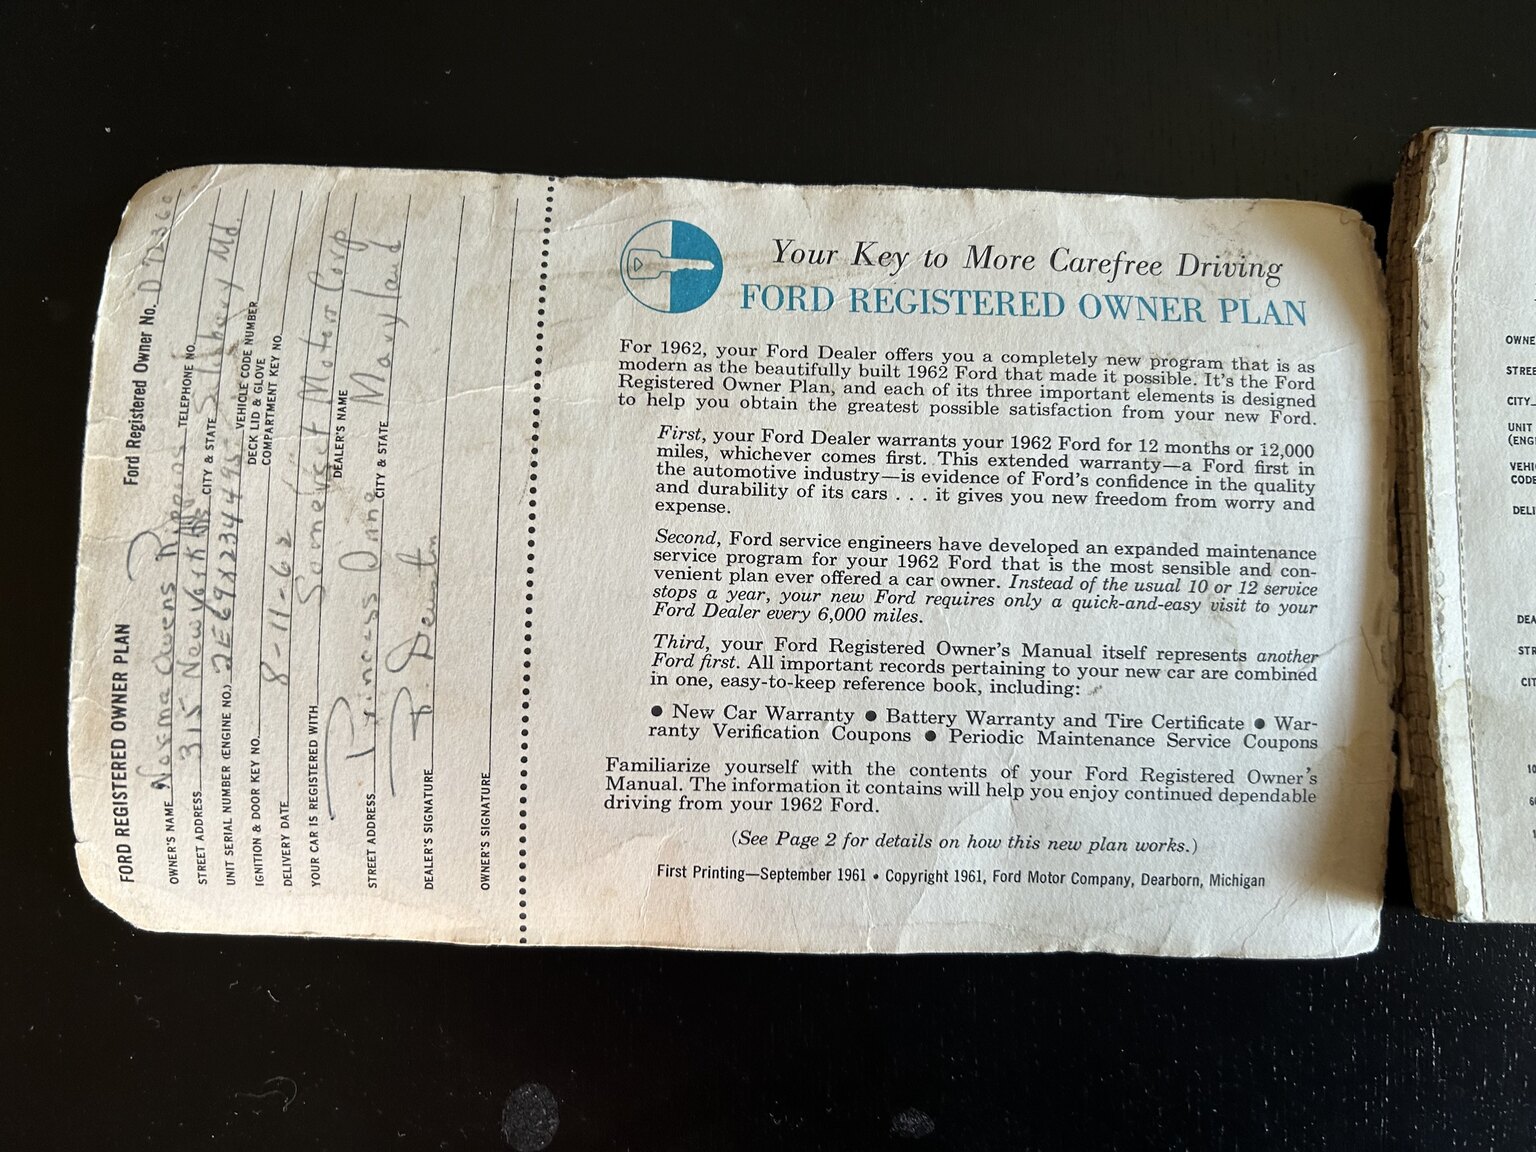 FORD REGISTERED OWNER PLAN Ford Registered Owner No. D72360
OWNER'S NAME Norma Owens Rippons TELEPHONE NO.
STREET ADDRESS 315 Newyork Ave CITY & STATE Salisbury Md.
UNIT SERIAL NUMBER (ENGINE NO.) 2E69X234495 VEHICLE CODE NUMBER
IGNITION & DOOR KEY NO. DECK LID & GLOVE
COMPARTMENT KEY NO.
DELIVERY DATE 8-11-62
YOUR CAR IS REGISTERED WITH Somerset Motor Corp
DEALER'S NAME
STREET ADDRESS Princess Anne CITY & STATE Maryland
DEALER'S SIGNATURE
OWNER'S SIGNATURE
Your Key to More Carefree Driving
FORD REGISTERED OWNER PLAN
For 1962, your Ford Dealer offers you a completely new program that is as
modern as the beautifully built 1962 Ford that made it possible. It's the Ford
Registered Owner Plan, and each of its three important elements is designed
to help you obtain the greatest possible satisfaction from your new Ford.
First, your Ford Dealer warrants your 1962 Ford for 12 months or 12,000
miles, whichever comes first. This extended warranty—a Ford first in
the automotive industry—is evidence of Ford's confidence in the quality
and durability of its cars . . . it gives you new freedom from worry and
expense.
Second, Ford service engineers have developed an expanded maintenance
service program for your 1962 Ford that is the most sensible and con-
venient plan ever offered a car owner. Instead of the usual 10 or 12 service
stops a year, your new Ford requires only a quick-and-easy visit to your
Ford Dealer every 6,000 miles.
Third, your Ford Registered Owner's Manual itself represents another
Ford first. All important records pertaining to your new car are combined
in one, easy-to-keep reference book, including:
● New Car Warranty ● Battery Warranty and Tire Certificate ● War-
ranty Verification Coupons ● Periodic Maintenance Service Coupons
Familiarize yourself with the contents of your Ford Registered Owner's
Manual. The information it contains will help you enjoy continued dependable
driving from your 1962 Ford.
(See Page 2 for details on how this new plan works.)
First Printing—September 1961 • Copyright 1961, Ford Motor Company, Dearborn, Michigan
OWNE
STREE
CITY
UNIT
(ENGI
VEHI
CODE
DELI
DEA
STR
CIT
10